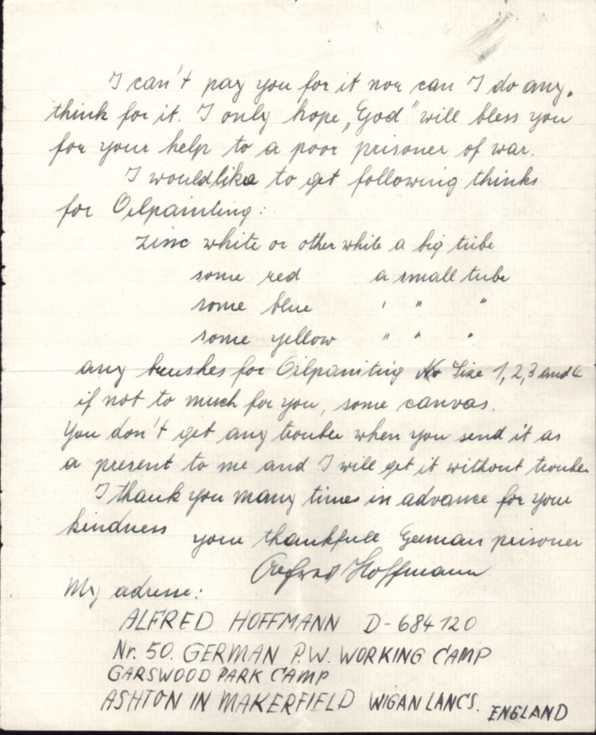 I can't pay you for it nor can I do any.
think for it. I only hope, „God" will bless you
for your help to a poor prisoner of war.
I would like to get following thinks
for Oilpainting:
zinc white or other white a big tube
some red a small tube
some blue ' " "
some yellow " " "
any brushes for Oilpainting No Size 1, 2, 3 and 6
if not to much for you, some canvas.
You don't get any trouber when you send it as
a present to me and I will get it without trouber
I thank you many times in advance for your
kindness your thankfull German prisoner
Alfred Hoffmann
My adresse:
ALFRED HOFFMANN D-684120
Nr. 50. GERMAN P.W. WORKING CAMP
GARSWOOD PARK CAMP
ASHTON IN MAKERFIELD WIGAN LANCS. ENGLAND